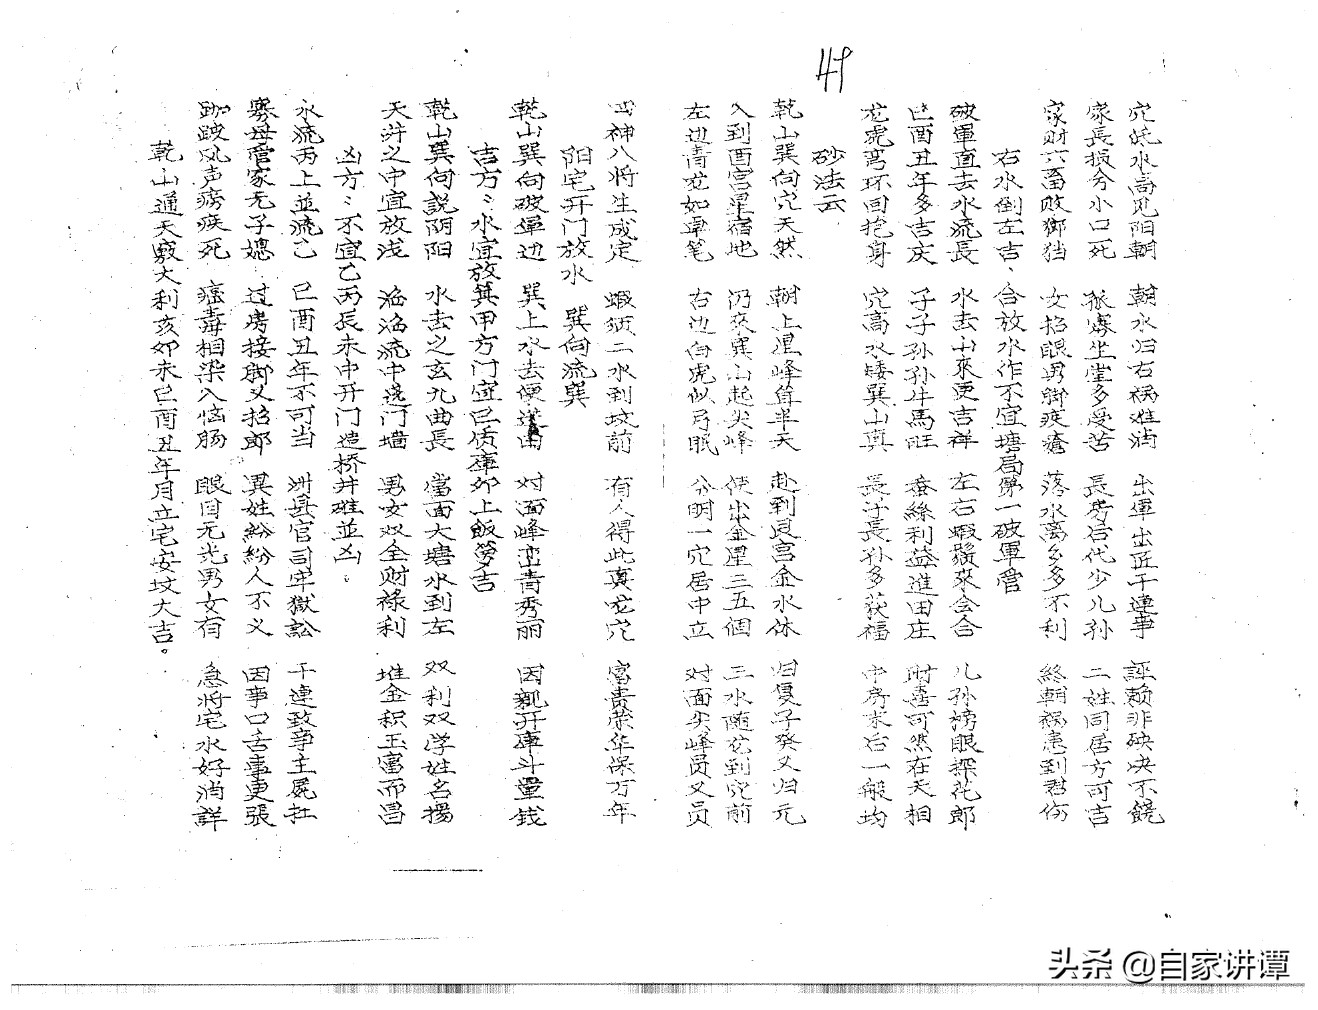 49
穴低水高见阳朝 朝水归右祸难消 出軍出匠干連事 誣赖非殃决不饒
家長損兮小口死 孤寡坐堂多受苦 長房后代少儿孙 二姓同居方可吉
家财六畜败 女招眼男脚疾瘡 落水离乡多不利 終朝祸患到君伤
右水倒左吉、合放水作不宜塘局第一破軍管
破軍直去水流長 水去山來更吉祥 左右蝦鬚來会合 儿孙榜眼探花郎
巳酉丑年多吉庆 子子孙孙牛馬旺 蚕絲利益進田庄 财喜可然在天相
龙虎弯环回抱身 穴高水矮巽山真 長子長孙多获福 中房末后一般均
砂法云
乾山巽向穴天然 朝上星峰耸半天 赴到艮宫金水体 归复子癸又归元
入到酉宫星宿地 仍來巽山起尖峰 使出金星三五個 三水随龙到穴前
左边青龙如卓笔 右边白虎似弓眠 分明一穴居中立 对面尖峰员又员
四神八将生成定 蝦须二水到坟前 有人得此真龙穴 富贵荣华保万年
阳宅开门放水 巽向流巽
乾山巽向破軍边 巽上水去便進田 对面峰峦青秀丽 因親开庫斗量钱
吉方：水宜放箕甲方门宜巳质庫卯上飯箩吉
乾山巽向説阴阳 水去之玄九曲長 當面大塘水到左 双利双学姓名揚
天井之中宜放浅 滔滔流中造门墙 男女双全财禄利 堆金积玉富而昌
凶方：不宜乙丙辰未申开门造桥井碓並凶。
水流丙上並流乙 巳酉丑年不可当 洲县官司牢獄訟 干連致争主冤扛
寡母管家无子媳 过房接脚又招郎 異姓紛紛人不义 因事口舌事更張
跏跛风声癆疾死 瘟毒相染入恼肠 眼目无光男女有 急将宅水好消詳
乾山通天竅大利亥卯未巳酉丑年月立宅安坟大吉。
头条 @自家讲谭